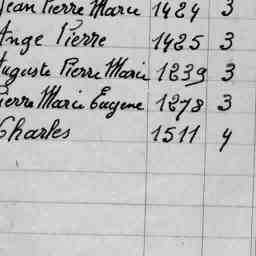 Jean Pierre Marie 1424 3
Ange Pierre 1425 3
Auguste Pierre Marie 1239 3
Pierre Marie Eugene 1278 3
Charles 1511 4